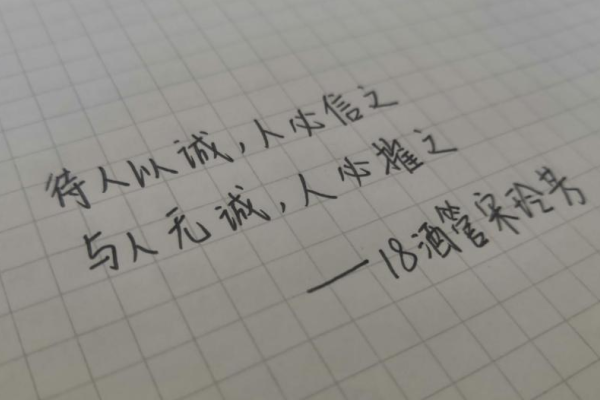 待人以诚,人必信之
与人无诚,人必摧之
—18酒管宋玲芳